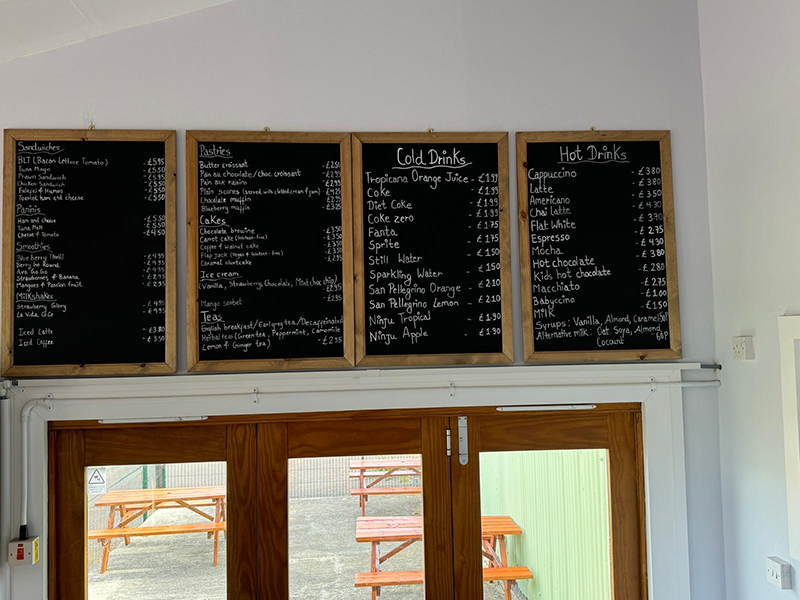 Sandwiches
BLT (Bacon Lettuce Tomato) - £5.95
Tuna Mayo - £5.50
Prawn Sandwich - £5.95
Chicken Sandwich - £5.50
Falafel & Humos - £5.50
Toasted ham and cheese - £5.50
Paninis
Ham and cheese - £5.50
Tuna Melt - £5.50
Cheese & Tomato - £4.95
Smoothies
Blue berry Thrill - £4.95
Berry Go Round - £4.95
Avo Go Go - £4.95
Strawberries & Banana - £4.95
Mangoes & Passion fruit - £4.95
Milkshakes
Strawberry Glory - £4.95
La Vida
Iced Latte - £3.80
Iced Coffee - £3.50
Pastries
Butter croissant - £2.50
Pain au chocolate/choc croissant - £2.95
Pain aux raisins - £2.95
Plain scones (served with clotted cream & jam) - £4.95
Chocolate muffin - £2.95
Blueberry muffin - £3.25
Cakes
Chocolate brownie - £3.50
Carrot cake - £3.50
Coffee & Walnut cake - £3.50
Flap jack - £3.50
Caramel shortcake - £3.50
Ice cream
(Vanilla, Strawberry, Chocolate, Mint choc chip) - £2.95
Mango Sorbet - £2.95
Teas
English breakfast/Earl grey tea/Decaffeinated
Herbal tea (Green tea, Peppermint, Camomile
Lemon & Ginger tea) - £2.95
Cold Drinks
Tropicana Orange Juice - £1.99
Coke - £1.99
Diet Coke - £1.99
Coke zero - £1.99
Fanta - £1.75
Sprite - £1.75
Still Water - £1.50
Sparkling Water - £1.50
San Pellegrino Orange - £2.10
San Pellegrino Lemon - £2.10
Ninju Tropical - £1.90
Ninju Apple - £1.90
Hot Drinks
Cappuccino - £3.80
Latte - £3.80
Americano - £3.50
Chai latte - £4.30
Flat White - £3.70
Espresso - £2.75
Mocha - £4.30
Hot chocolate - £3.80
Kids hot chocolate - £2.80
Macchiato - £2.75
Babyccino - £1.00
Milk - £1.50
Syrups: Vanilla, Almond, Caramel 50p
Alternative milk: Oat, Soya, Almond,
Coconut - 60p